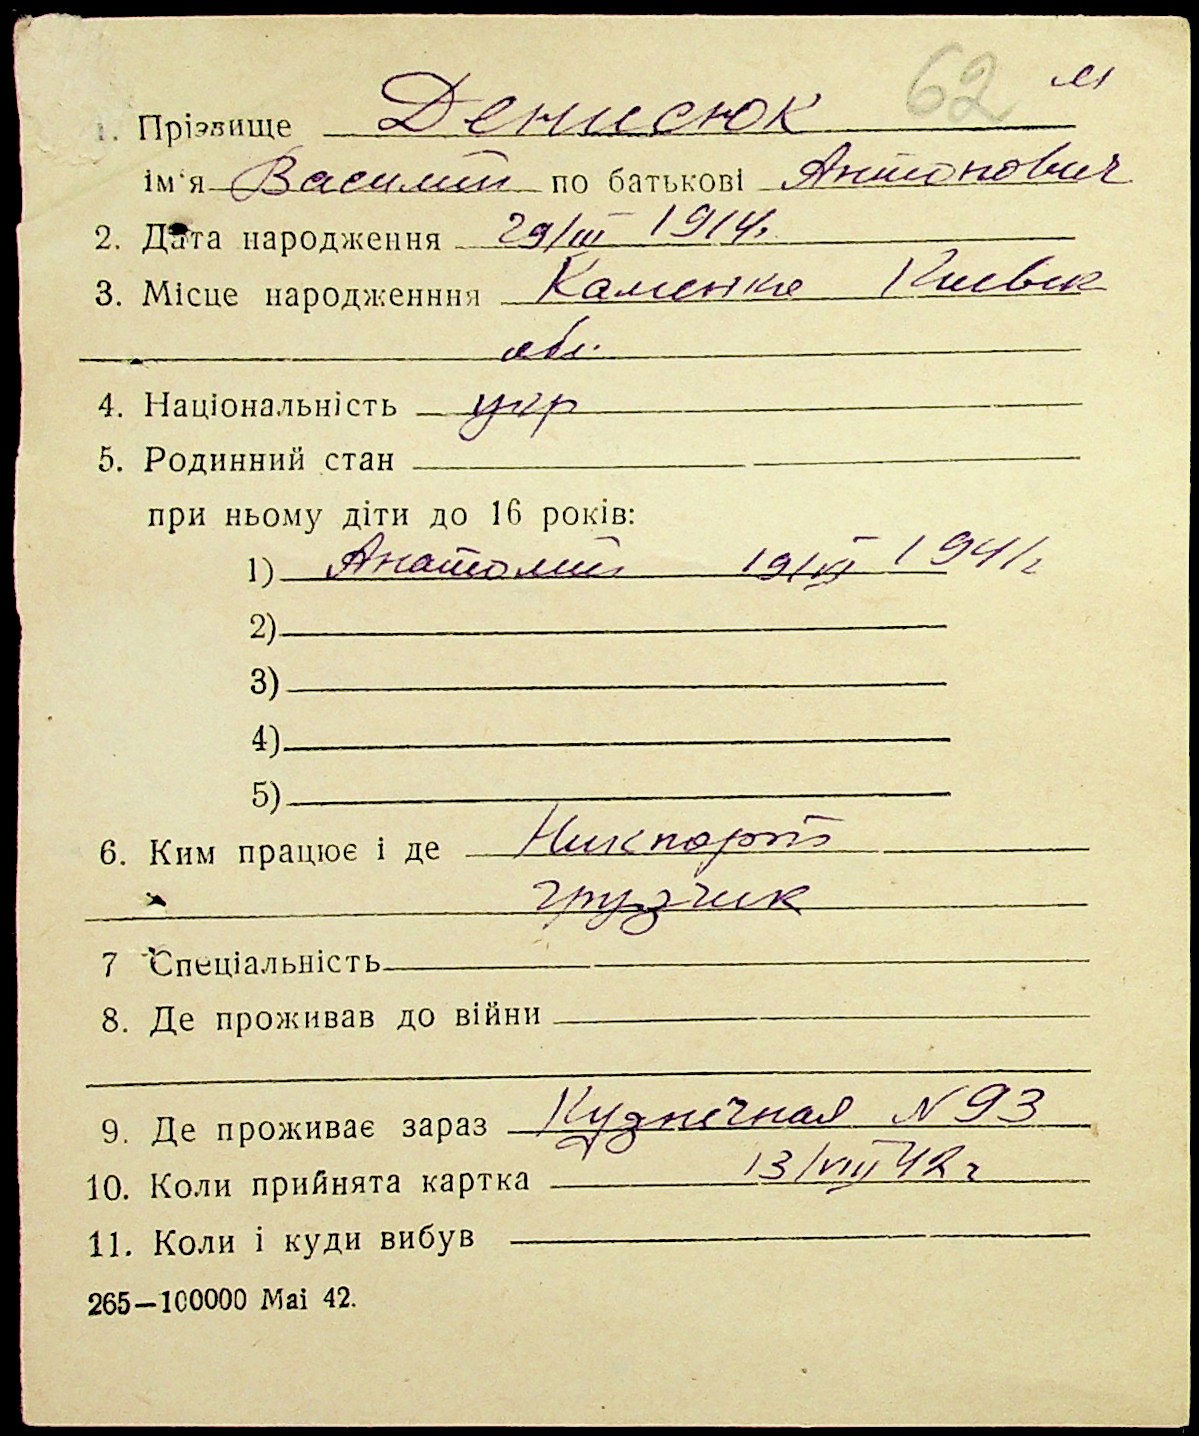 62 м
1. Прізвище Денисюк
ім'я Василий по батькові Антонович
2. Дата народження 29/III 1914г.
3. Місце народженння Каменка Киевск
обл.
4. Національність укр
5. Родинний стан
при ньому діти до 16 років:
1) Анатолий 19/VI 1941г
2)
3)
4)
5)
6. Ким працює і де Никпорт
грузчик
7 Спеціальність
8. Де проживав до війни
9. Де проживає зараз Кузнечная N 93
10. Коли прийнята картка 13/VIII 42 г
11. Коли і куди вибув
265—100000 Mai 42.